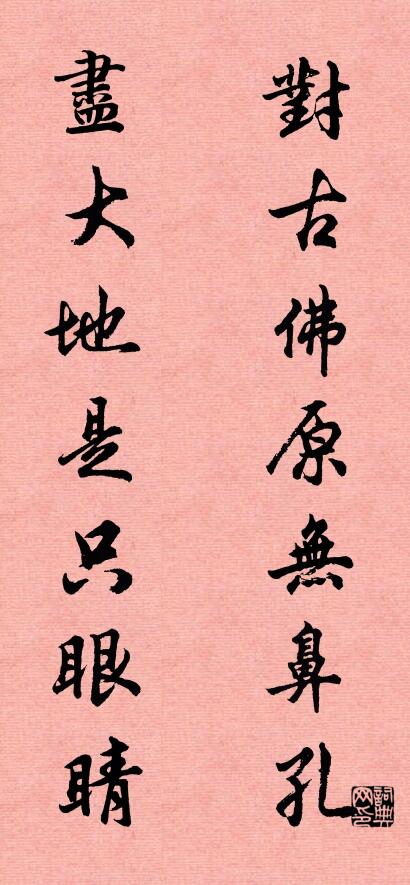 對古佛原無鼻孔
盡大地是只眼睛
詞典网印